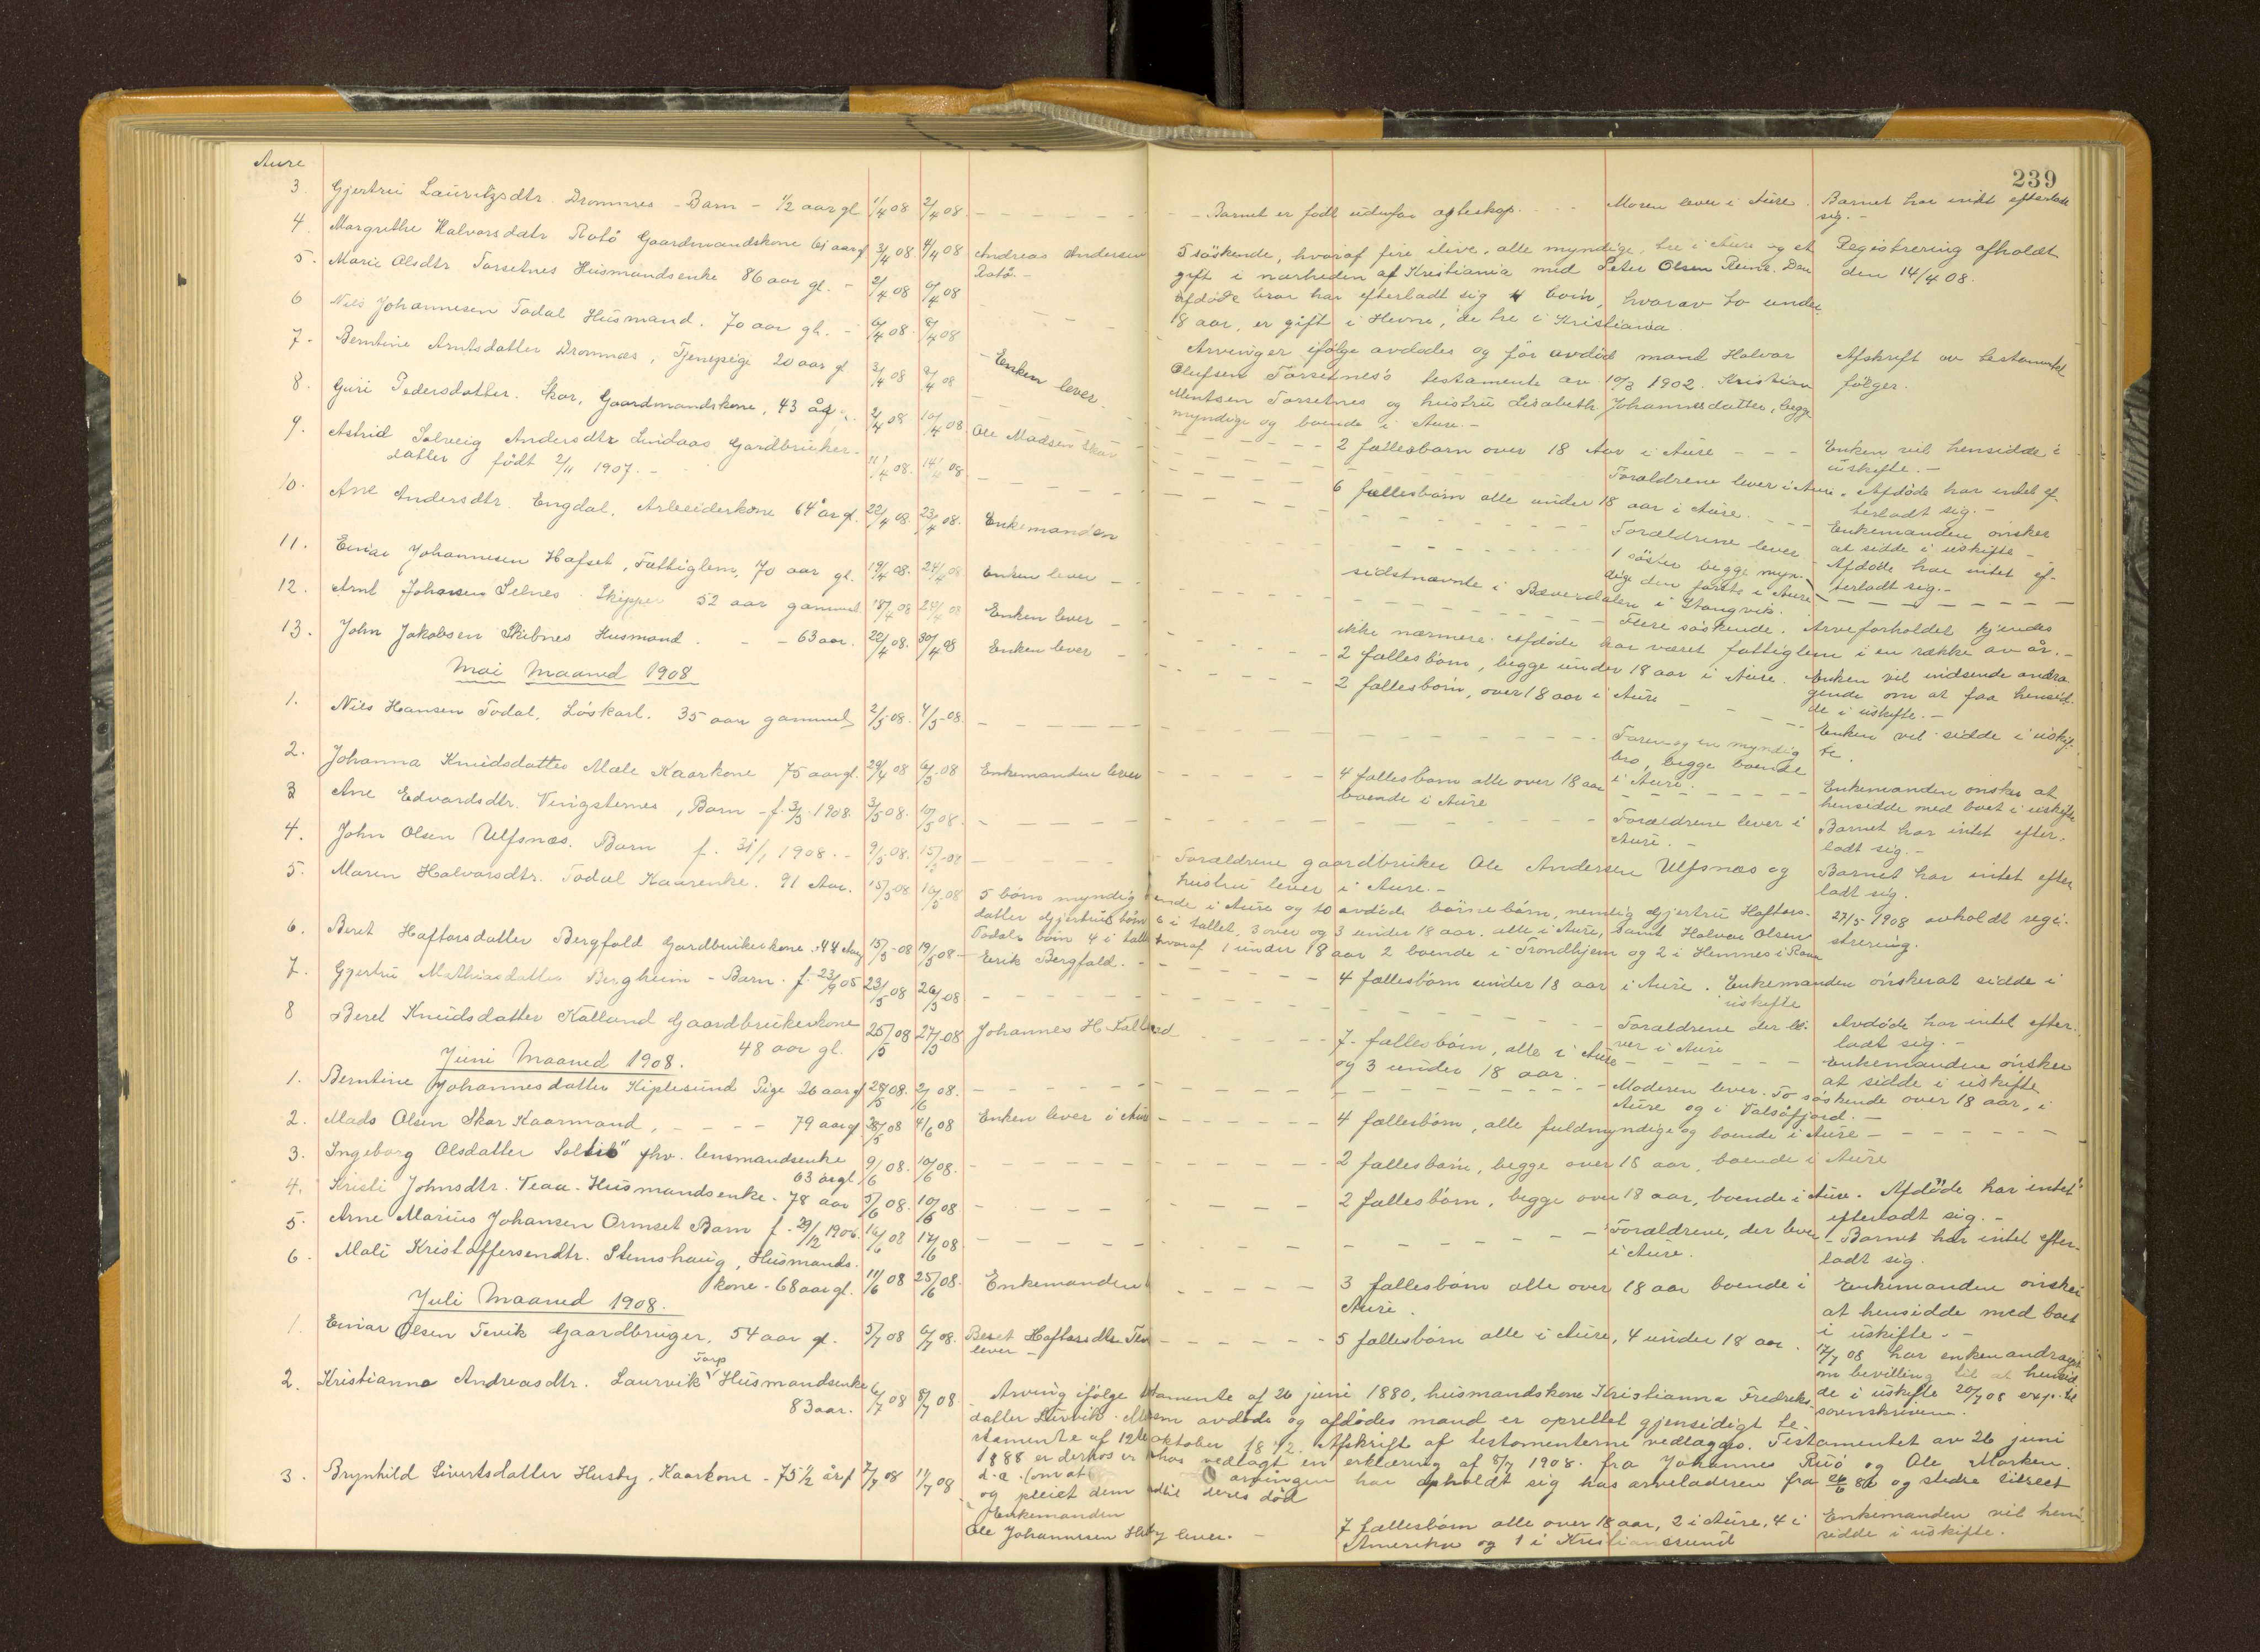 239
Aure
3. Gjertrú Lauritzsdtr. Drommes - Barn - 1/2 aar gl 1/4 08. 2/4 08. - Barnet er født udenfor ægteskap. Moren lever i Aure. Barnet har intet efterladt
sig. -
4. Margrethe Halvorsdatr Rotö Gaardmandskone 61 aar gl 3/4 08 4/4 08. Andreas Andersen
Rotö. -
5 söskende, hvoraf fire ilive, alle myndige, tre i Aure og et
gift i nærheden af Kristiania med Peter Olsen Reine. Den
afdöde bror har efterladt sig 4 børn, hvorav to under
18 aar, er gift i Hevne, de tre i Kristiania.
Registrering afholdt
den 14/4 08.
5. Marie Olsdtr Torsetnes Husmandsenke 86 aar gl. - 2/4 08 6/4 08
Arvinger ifølge avdødes og før avdød mand Halvor
Olufsen Torsetnes's testamente av 10/3 1902. Kristian
Mentsen Torsetnes og hustru Lisabeth Johannesdatter, begge
myndige og boende i Aure. -
Afskrift av testamentet
følger.
6 Nils Johannesen Todal Husmand. 70 aar gl. - 6/4 08. 8/4 08 - Enken lever.
2 fællesbarn over 18 Aar i Aure - - - Enken vil hensidde i
uskifte. -
7. Berntine Arntsdatter Drommes, Tjenepige 20 aar gl 3/4 08 8/4 08
Forældrene lever i Aure. Afdöde har intet ef-
terladt sig. -
8. Guri Pedersdatter. Skar, Gaardmandskone, 43 åg. 2/4 08 10/4 08 Ole Madsen Skar
6 fællesbørn alle under 18 aar i Aure. - - - Enkemanden ønsker
at sidde i uskifte -
9. Astrid Solveig Andersdtr Lindaas Gardbruker-
datter født 2/11 1907. - 11/4 08. 14/4 08
Forældrene lever - Afdöde har intet ef-
terladt sig. -
10. Ane Andersdtr. Engdal, Arbeiderkone 64 år gl. 22/4 08. 23/4 08. Enkemanden
1 söster begge myn-
dige den förste i Aure
sidstnævnte i Bæverdalen i Stangvik.
11. Einar Johannesen Hafset, Fattiglem, 70 aar gl. 19/4 08. 24/4 08 Enken lever -
Flere söskende. Arveforholdet kjendes
ikke nærmere. Afdöde har været fattiglem i en række av år. -
12. Arnt Johansen Selnes Skipper 52 aar gammel 18/4 08 24/4 08 Enken lever -
2 fællesbørn, begge under 18 aar i Aure. Enken vil indsende andra
gende om at faa hensid-
de i uskifte. -
13. John Jakobsen Skibnes Husmand. - - 63 aar. 22/4 08. 30/4 08 Enken lever -
2 fællesbörn, over 18 aar i Aure - - - Enken vil sidde i uskif-
te.
Mai Maaned 1908
1. Nils Hansen Todal, Löskarl. 35 aar gammel 2/5 08. 4/5 08.
Faren og en myndig
bro, begge boende
i Aure.
2. Johanna Knudsdatter Mæle Kaarkone 75 aar gl. 29/4 08 6/5 08 Enkemanden lever
4 fællesbørn alle over 18 aar
boende i Aure
Enkemanden ønsker at
hensidde med boet i uskifte
3 Ane Edvardsdtr. Vingsternes, Barn - f. 3/3 1908. 3/5 08. 10/5 08.
Forældrene lever i
Aure. -
Barnet har intet efter-
ladt sig. -
4. John Olsen Ulfsnæs. Barn f. 31/1 1908. - 9/5 08. 15/5 08
- Forældrene gaardbruker Ole Andersen Ulfsnæs og
hustru lever i Aure. -
Barnet har intet efter
ladt sig.
5. Maren Halvorsdtr. Todal Kaarenke. 91 Aar. 15/5 08 16/5 08
5 børn myndig ende i Aure og to avdøde børnebörn, nemlig Gjertru Haftors-
datter Gjertrus børn 6 i tallet, 3 over og 3 under 18 aar. alle i Aure, samt Halvor Olsen
Todals børn 4 i tallet hvoraf 1 under 18 aar 2 boende i Trondhjem og 2 i Hemnes i Rana
27/5 1908 avholdt regi-
strering.
6. Beret Haftorsdatter Bergfald Gardbrukerkone. 44 Aar 15/5 08 19/5 08 - Erik Bergfald. -
4 fællesbørn under 18 aar i Aure. Enkemanden önsker at sidde i
uskifte
7. Gjertru Mathiasdatter Bergheim - Barn. f. 23/9 05 23/5 08 26/5 08
Forældrene der le-
ver i Aure
Avdøde har intet efter-
ladt sig. -
8 Beret Knudsdatter Kalland Gaardbrukerkone
48 aar gl. 25/5 08 27/5 08 Johannes H. Kalland
7 - fællesbörn, alle i Aure
og 3 under 18 aar.
Enkemanden ønsker
at sidde i uskifte
Juni Maaned 1908.
1. Berntine Johannesdatter Kiplesund Pige 26 aar gl 28/5 08. 2/6 08.
- Moderen lever. To söskende over 18 aar, i
Aure og i Valsöfjord. -
2. Mads Olsen Skar Kaarmand, - - - - 79 aar gl 28/5 08 4/6 08 Enken lever i Aure
4 fællesbörn, alle fuldmyndige og boende i Aure -
3. Ingeborg Olsdatter Solsiö" fhv. lensmandsenke
63 år gl 9/6 08. 10/6 08.
2 fællesbörn, begge over 18 aar, boende i Aure
4. Kristi Johnsdtr. Teaa - Husmandsenke - 78 aar 5/6 08. 10/6 08
2 fællesbörn, begge over 18 aar, boende i Aure. Afdöde har intet
efterladt sig. -
5. Arne Marius Johansen Ormset Barn f. 29/12 1906. 16/6 08 17/6 08.
Forældrene, der lever
i Aure.
- Barnet har intet efter-
ladt sig.
6. Mali Kristoffersendtr. Stemshaug, Husmands-
kone - 68 aar gl. 11/6 08 25/6 08. Enkemanden
3 fællesbørn alle over 18 aar boende i
Aure.
Enkemanden önsker
at hensidde med boet
i uskifte. -
Juli Maaned 1908.
1. Einar Olsen Tevik Gaardbruger, 54 aar gl. 5/7 08 6/7 08. Beret Haftorsdtr. Tevi
lever -
5 fællesbörn alle i Aure, 4 under 18 aar.
17/7 08 har enken andraget
om bevilling til at hensid
de i uskifte 20/7 08 exp. til
sorenskriveren.
2. Kristianna Andreasdtr. Laurvik Torp Husmandsenke
83 aar. 6/7 08 8/7 08.
Arving ifölge testamente af 26 juni 1880, husmandskone Kristianna Fredriks-
datter Lurvik. Mellem avdøde og afdödes mand er oprettet gjensidigt te-
stamente af 12te oktober 1872. Afskrift af testamenterne vedlægges. Testamentet av 26 juni
1888 er derhos vedlagt en erklæring af 8/7 1908. fra Johannes Ruö og Ole Morken.
d. a. (om at arvingen har opholdt sig hos arveladeren fra 26/6 80 og stedse
og pleiet dem indtil deres död
3. Brynhild Sivertsdatter Husby, Kaarkone - 75 1/2 år gl 7/7 08 11/7 08
Enkemanden
Ole Johannesen Husby lever. -
7 fællesbörn alle over 18 aar, 2 i Aure, 4 i
Amerika og 1 i Kristiansund
Enkemanden vil hen-
sidde i uskifte.